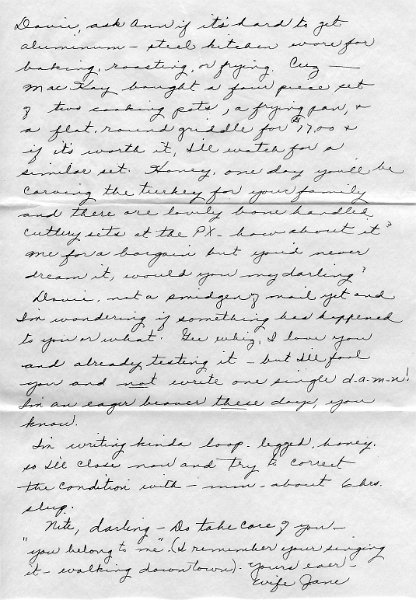 Davie, ask Ann if it's hard to get
aluminum - steel kitchen ware for
baking, roasting, or frying. Cuz -
Mac Kay bought a four piece set
of two cooking pots, a frying pan, &
a flat, round griddle for $17.00 &
if it's worth it, I'll watch for a
similar set. Honey, one day you'll be
carving the turkey for your family
and there are lovely bone handled
cutlery sets at the PX - how about it?
Me for a bargain but you'd never
dream it, would you my darling?
Davie, not a smidgen of mail yet and
I'm wondering if something has happened
to you or what. Gee whiz, I love you
and already testing it - but I'll fool
you and not write one single d-a-m-n!
I'm an eager beaver these days, you
know.
I'm writing kinda loop-legged, honey,
so I'll close now and try to correct
the condition with - mm - about 6 hrs.
sleep.
Nite, darling - Do take care of you -
"you belong to me". (I remember your singing
it - walking downtown). Yours ever -
Wife Jane